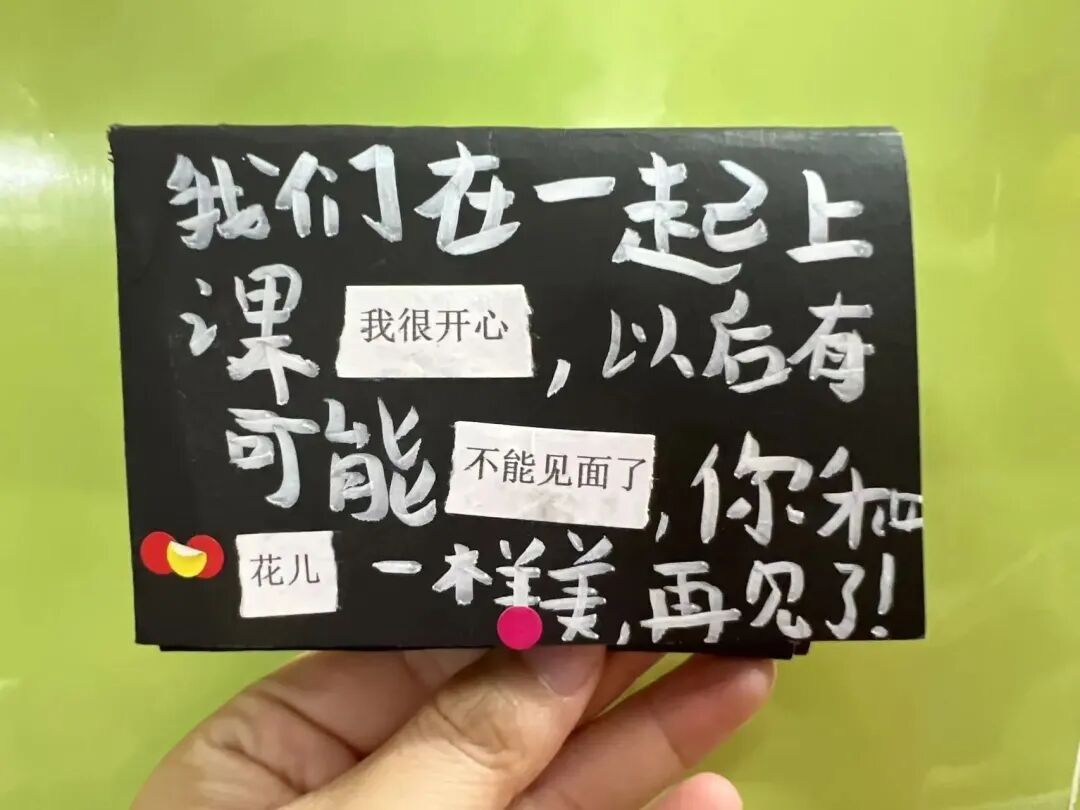 我们在一起上
课我很开心,以后有
可能不能见面了,你和
花儿一样美,再见了!